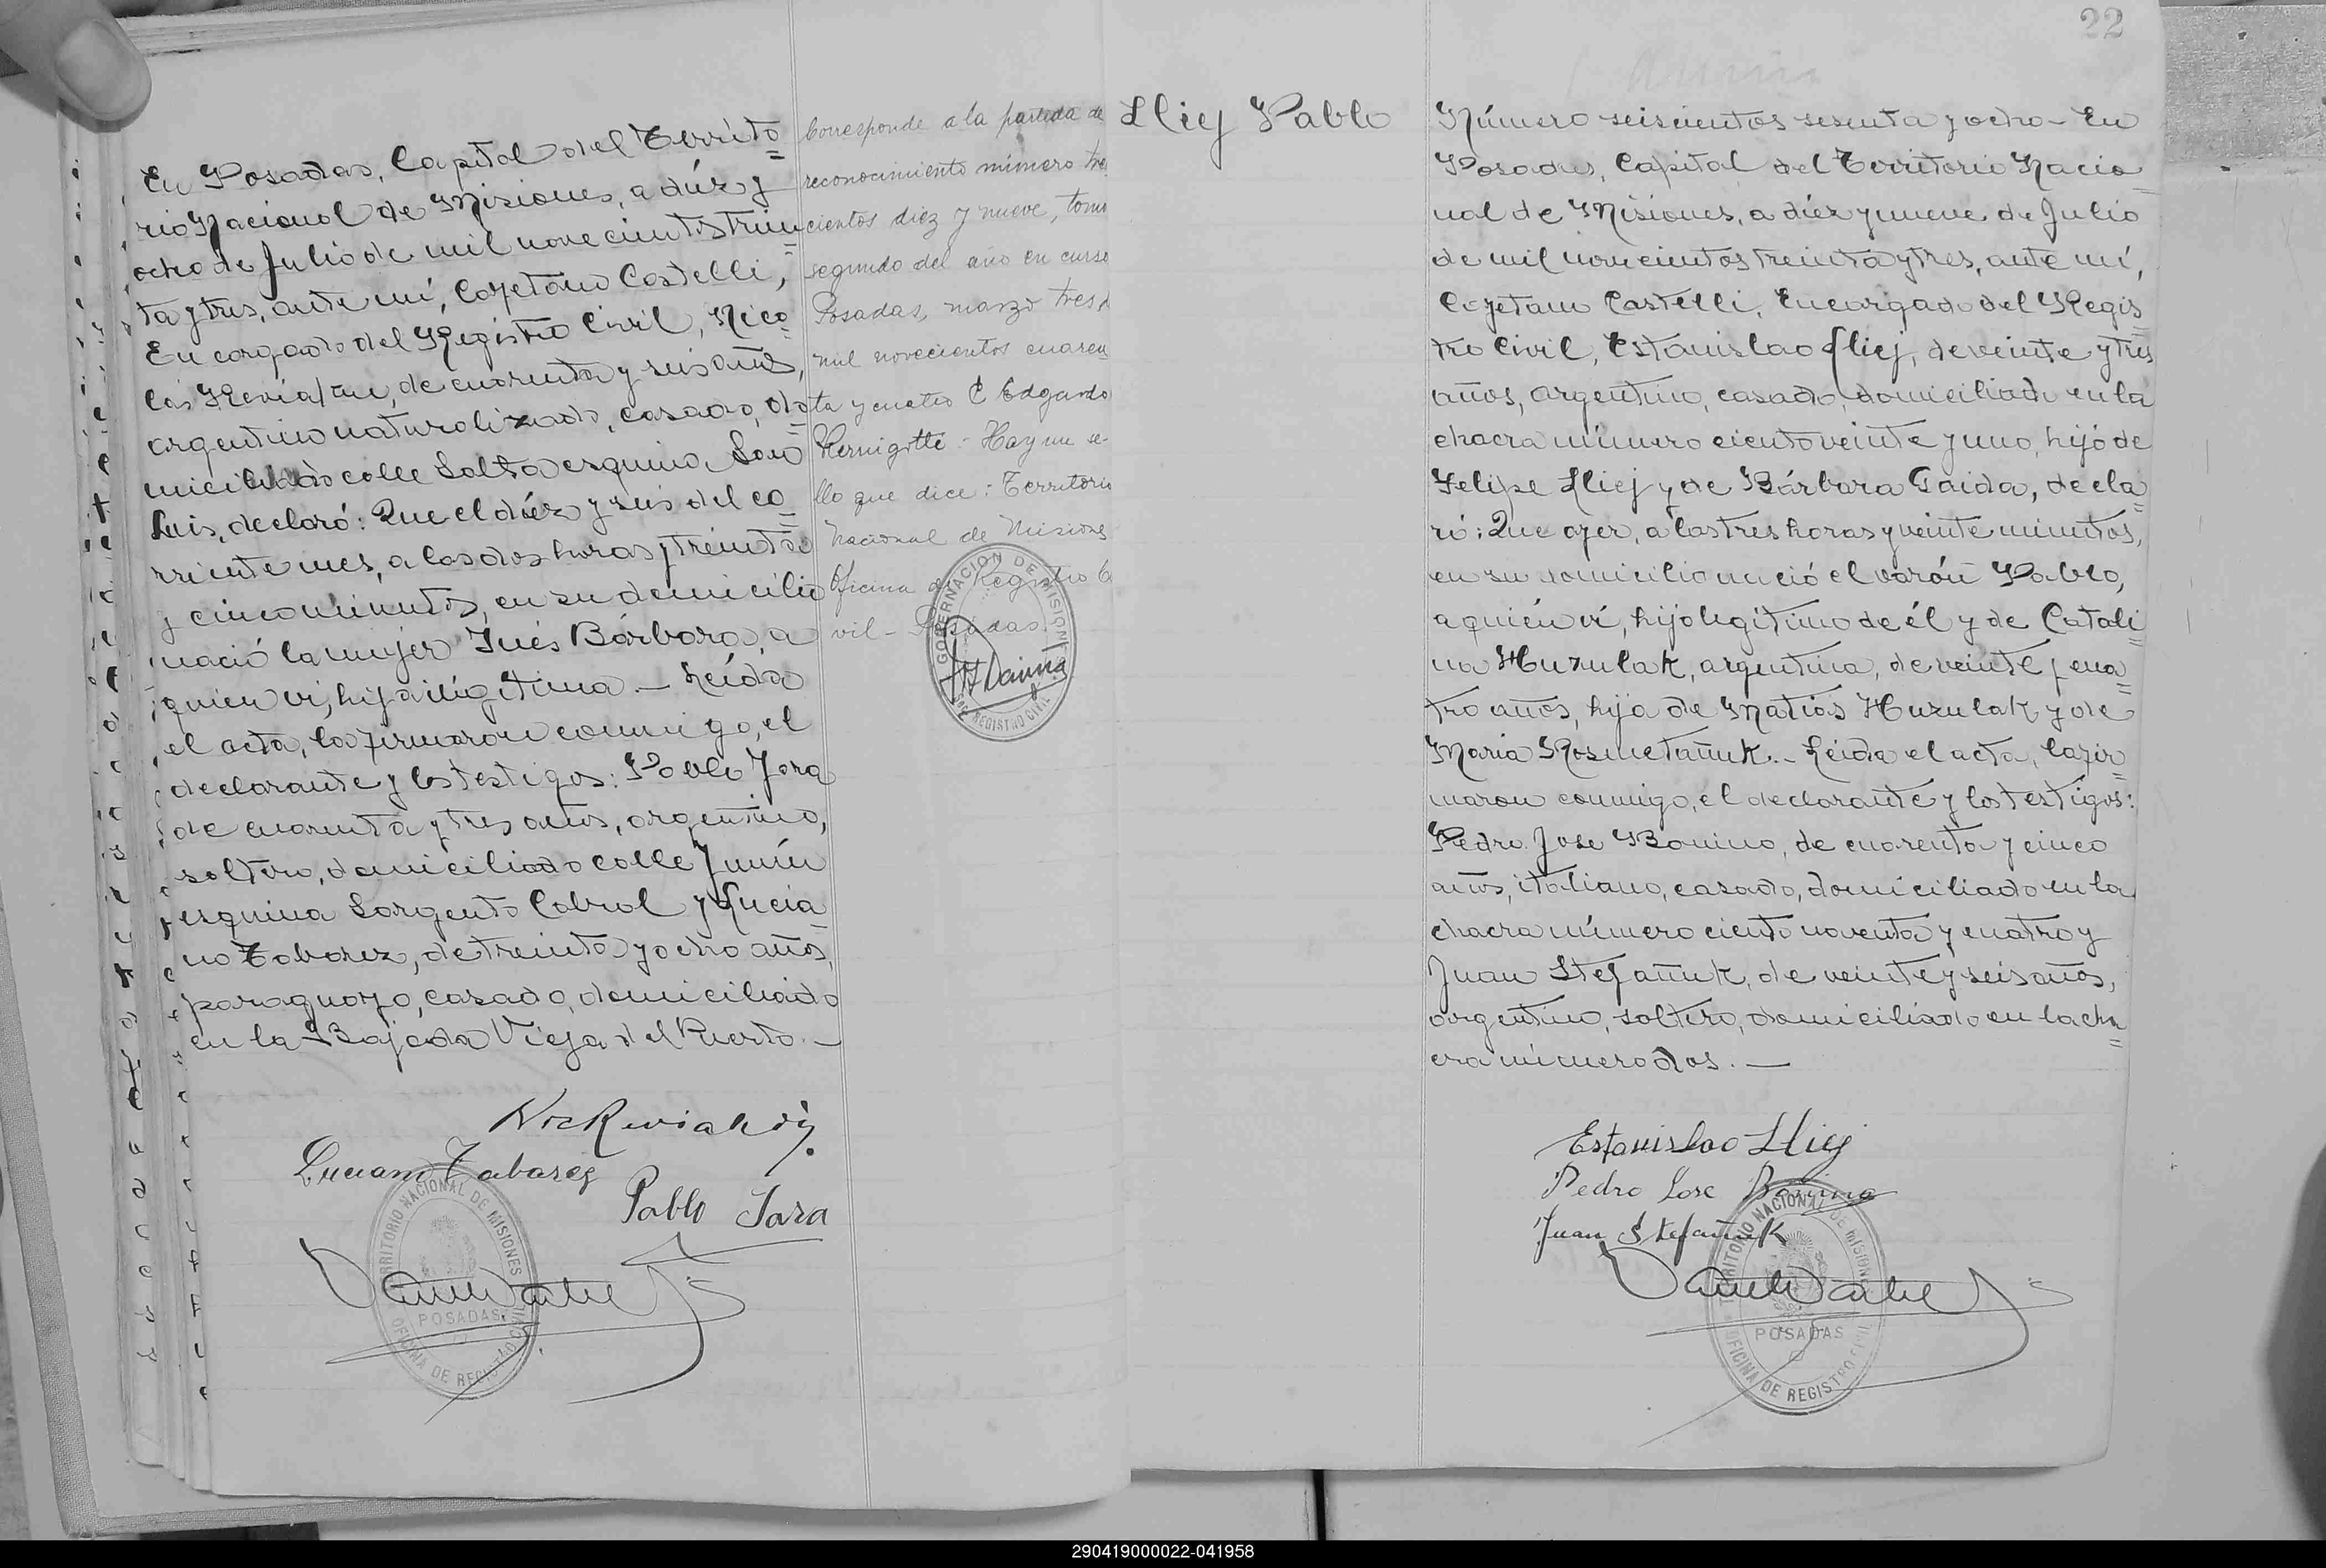 En Posadas, Capital del Territo
rio Nacional de Misiones, a diéz y
ocho de Julio de mil novecientos trein
ta y tres, ante mí, Cayetano Castelli,
Encargado del Registro Civil, Nico
lás de cuarenta y seis años,
argentino naturalizado, casado, do
miciliado calle Salta esquina San
Luis, declaró: Que el diéz y seis del co
rriente mes, a las dos horas y treinta
y cinco minutos, en su domicilio
nació la mujer Inés Bárbara, a
quien ví, hija ilegítima. — Leída
el acta, la firmaron conmigo, el
declarante y los testigos: Pablo Jara
de cuarenta y tres años, argentino,
soltero, domiciliado calle Junín
esquina Sargento Cabral y Lucia
no Tabarez, de treinta y ocho años,
paraguayo, casado, domiciliado
en la Bajada Vieja del Puerto. —
Luciano Tabarez
Pablo Jara
TERRITORIO NACIONAL DE MISIONES
POSADAS
OFICINA DE REGISTRO CIVIL
Corresponde a la partida de
reconocimiento número tres
cientos diez y nueve, tomo
segundo del año en curso
Posadas, marzo tres de
mil novecientos cuaren
ta y cuatro E Edgardo
Hay un se-
llo que dice: Territorio
Nacional de Misiones
Oficina de Registro Ci
vil - Posadas.
GOBERNACION DE MISIONES
REGISTRO CIVIL
22
Lliej Pablo
Número seiscientos sesenta y ocho - En
Posadas, Capital del Territorio Nacio
nal de Misiones, a diéz y nueve de Julio
de mil novecientos treinta y tres, ante mí,
Cayetano Castelli, Encargado del Regis
tro Civil, Estanislao Lliej, de veinte y tres
años, argentino, casado, domiciliado en la
chacra número ciento veinte y uno, hijo de
Felipe Lliej y de Bárbara Gaida, decla
ró: Que ayer, a las tres horas y veinte minutos,
en su domicilio nació el varón Pablo,
a quién ví, hijo legítimo de él y de Catali
na Huzulak, argentina, de veinte y cua
tro años, hija de Matías Huzulak y de
María Rosmetañuk. - Leída el acta, la fir
maron conmigo, el declarante y los testigos:
Pedro José Bonino, de cuarenta y cinco
años, italiano, casado, domiciliado en la
chacra número ciento noventa y cuatro y
Juan Stefañuk, de veinte y seis años,
argentino, soltero, domiciliado en la cha
cra número dos. —
Estanislao Lliej
Pedro Jose Bonino
Juan Stefañuk
TERRITORIO NACIONAL DE MISIONES
POSADAS
OFICINA DE REGISTRO CIVIL
290419000022-041958